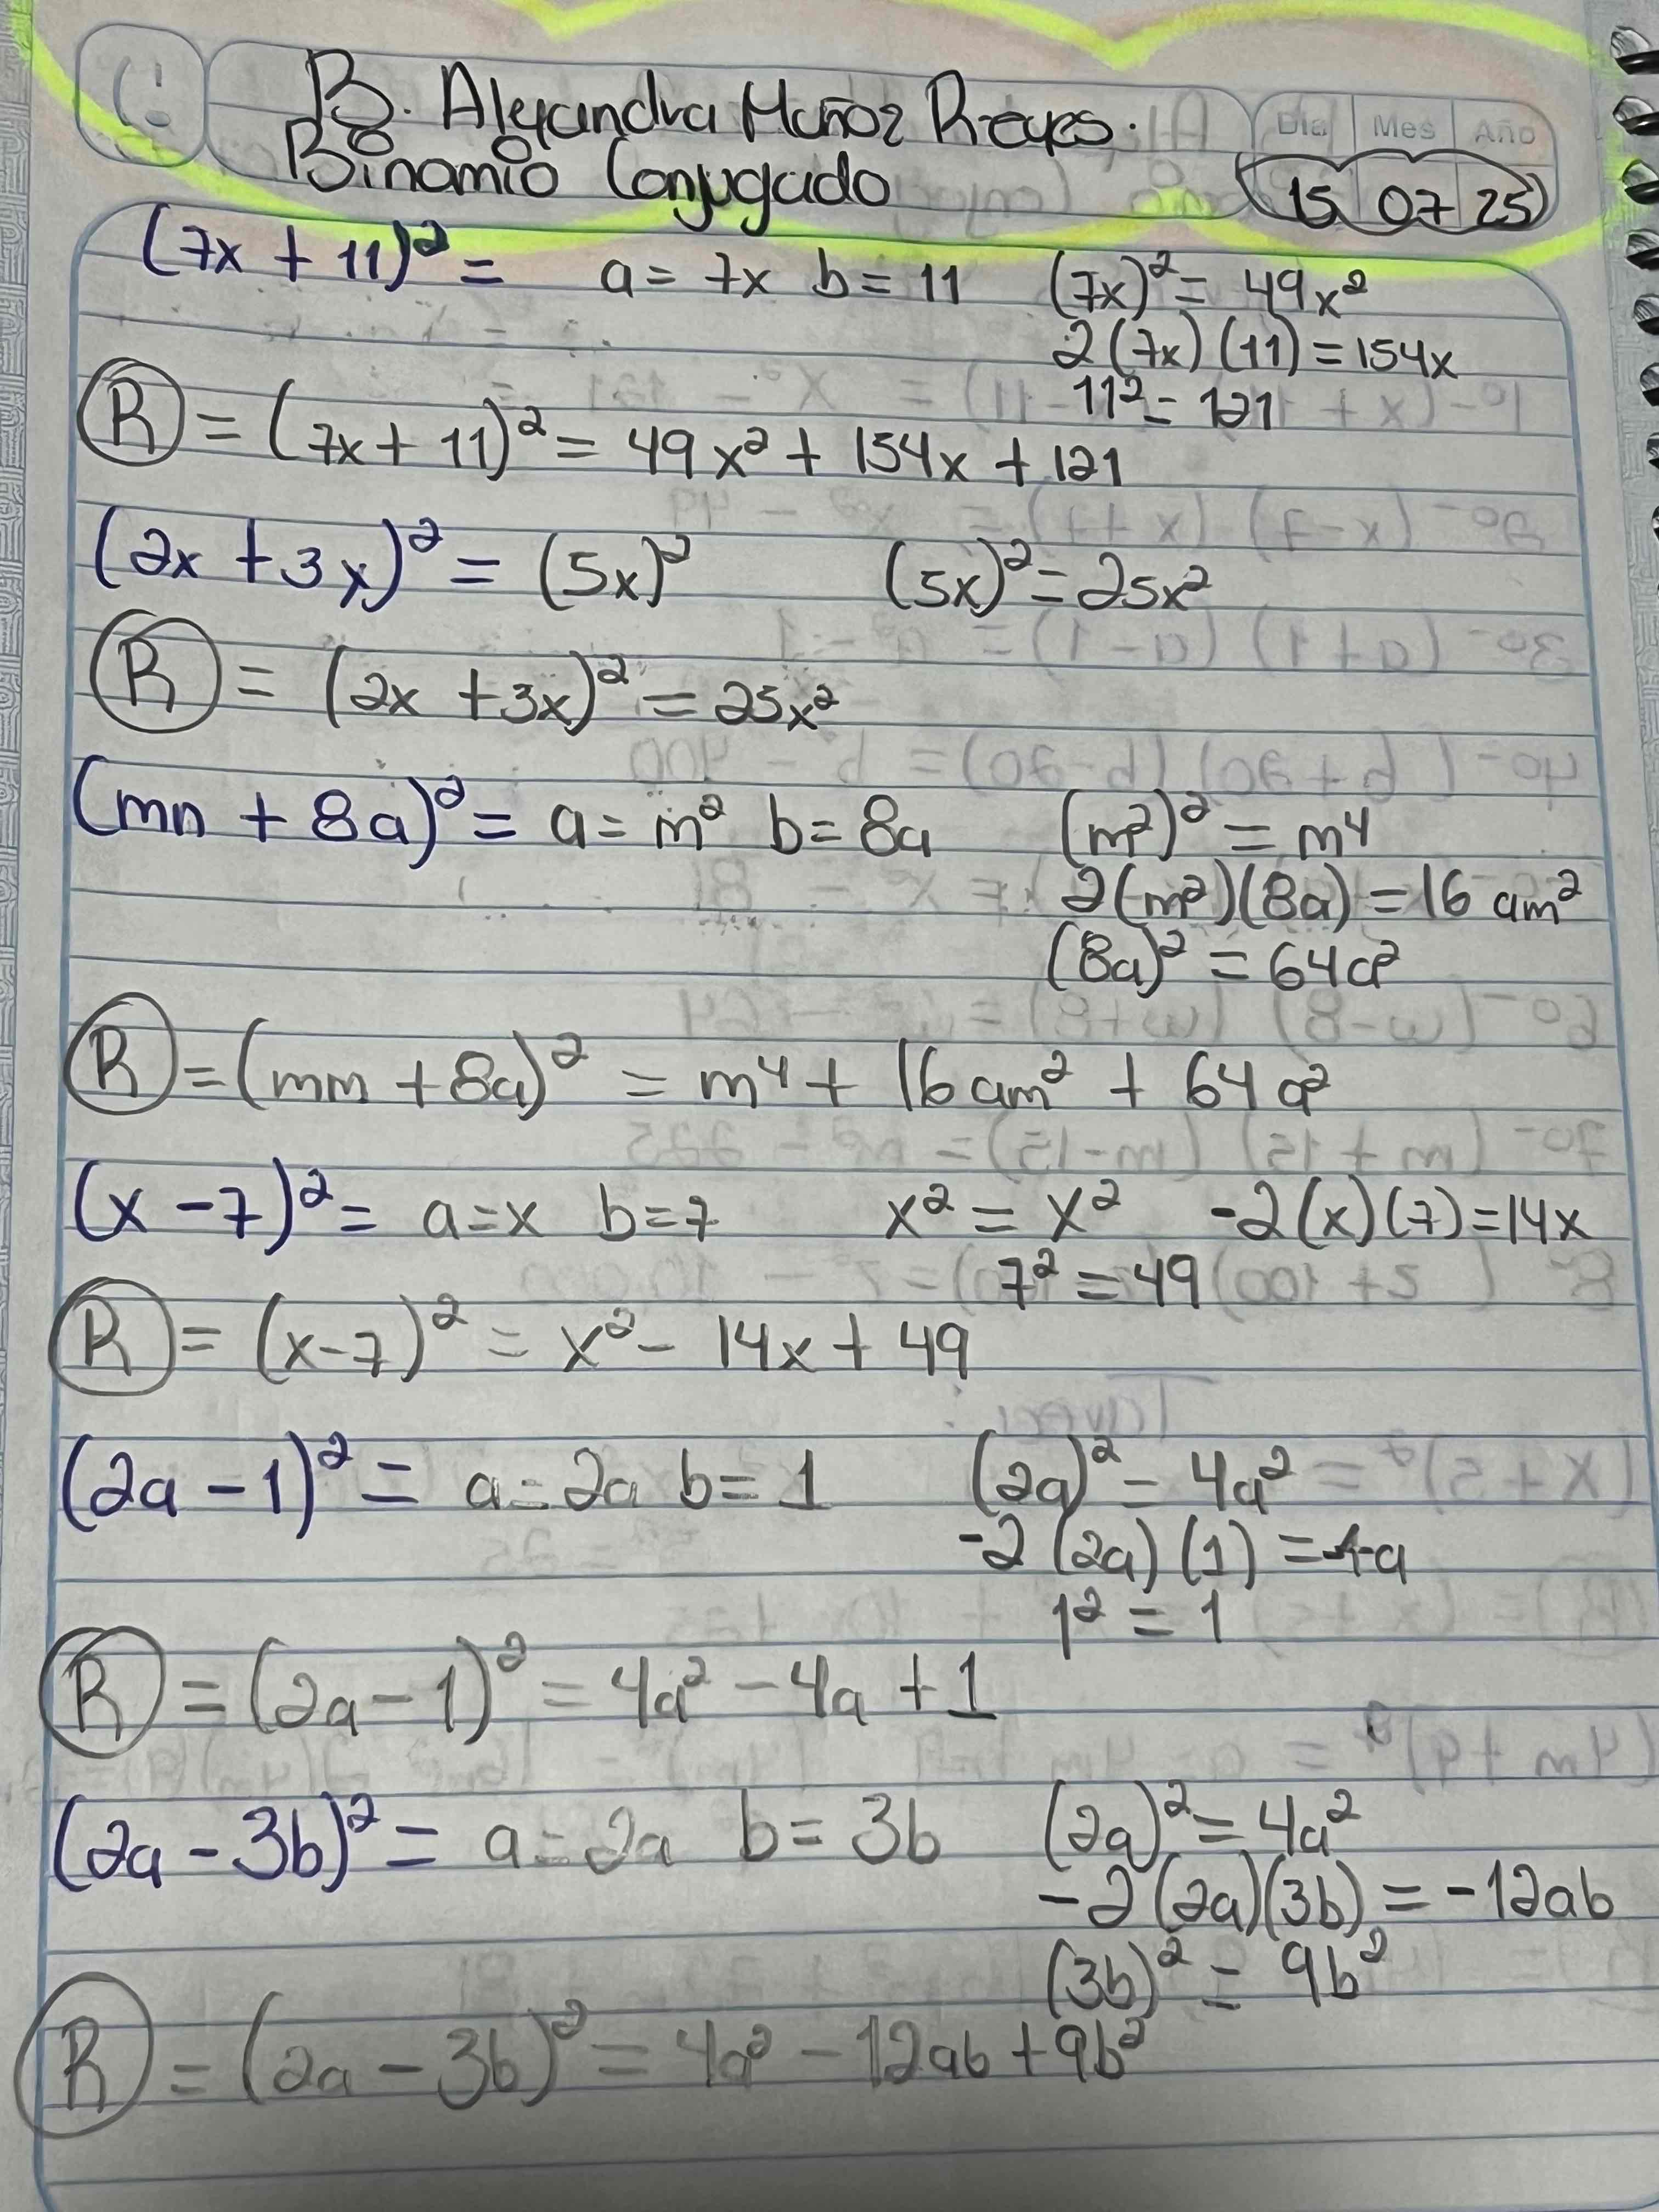 B. Alexandra Muñoz Reyes.
Binomio Conjugado
Día Mes Año
15 07 25
(7x + 11)² = a = 7x b = 11 (7x)² = 49x²
2(7x)(11) = 154x
11² = 121
R = (7x + 11)² = 49x² + 154x + 121
(2x + 3x)² = (5x)² (5x)² = 25x²
R = (2x + 3x)² = 25x²
(mn + 8a)² = a = m² b = 8a (m²)² = m⁴
2(m²)(8a) = 16 am²
(8a)² = 64a²
R = (mm + 8a)² = m⁴ + 16am² + 64a²
(x - 7)² = a = x b = 7 x² = x² -2(x)(7) = 14x
7² = 49
R = (x - 7)² = x² - 14x + 49
(2a - 1)² = a = 2a b = 1 (2a)² = 4a²
-2(2a)(1) = -4a
1² = 1
R = (2a - 1)² = 4a² - 4a + 1
(2a - 3b)² = a = 2a b = 3b (2a)² = 4a²
-2(2a)(3b) = -12ab
(3b)² = 9b²
R = (2a - 3b)² = 4a² - 12ab + 9b²